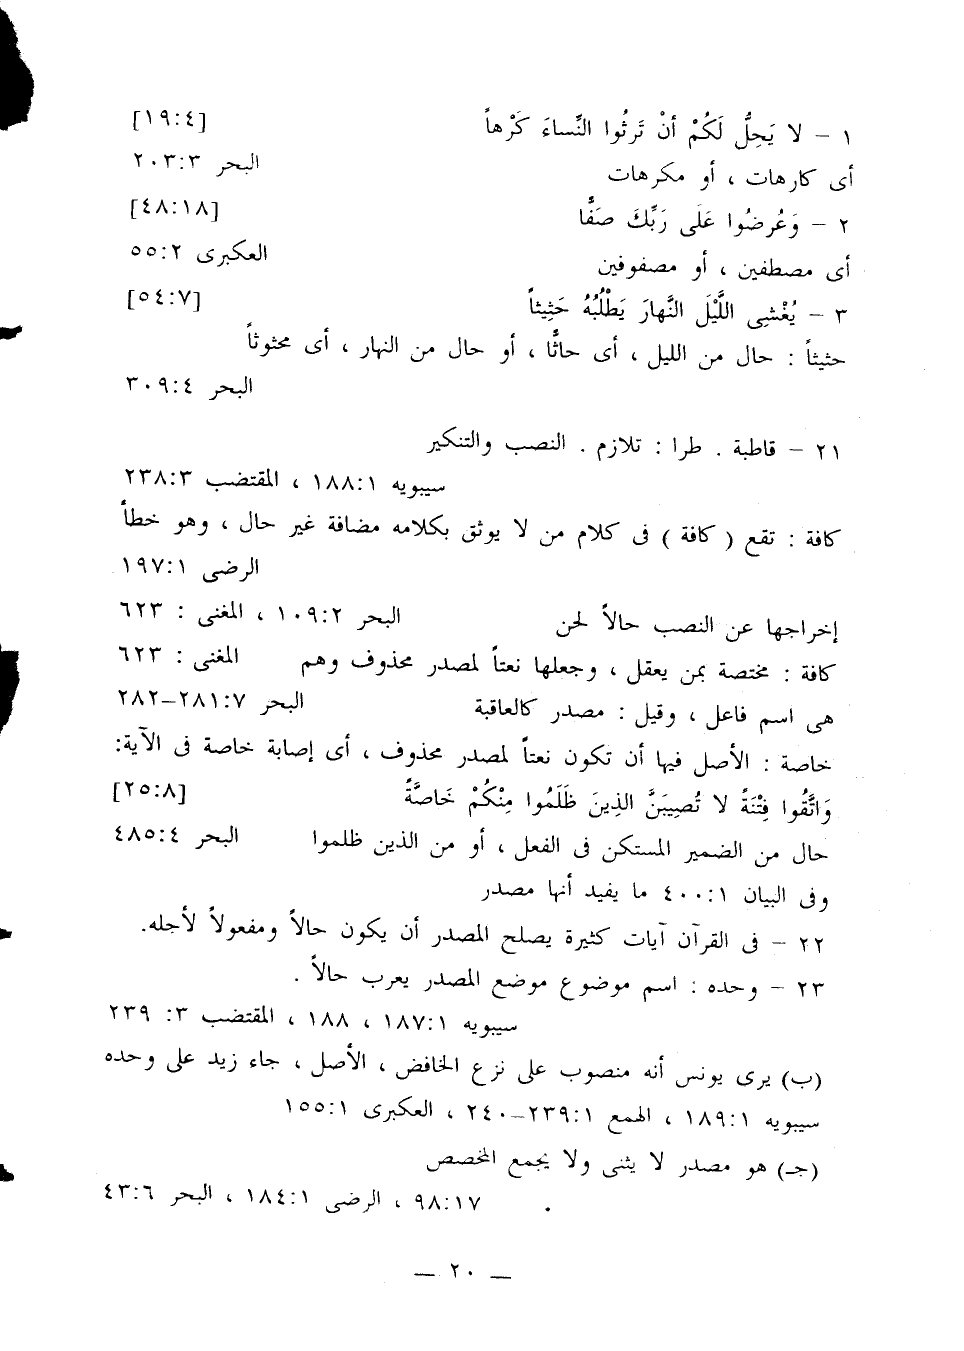 ١ – لا يَحِلُّ لَكُمْ أنْ تَرِثُوا النِّساءَ كَرْهاً [١٩:٤]
أى كارهات ، أو مكرهات البحر ٢٠٣:٣
٢ – وَعُرِضُوا عَلَى رَبِّكَ صَفًّا [٤٨:١٨]
أى مصطفين ، أو مصفوفين العكبرى ٥٥:٢
٣ – يُغْشِى اللَّيْلَ النَّهارَ يَطْلُبُهُ حَثِيثاً [٥٤:٧]
حثيثاً : حال من الليل ، أى حاثًّا ، أو حال من النهار ، أى محثوثاً
البحر ٣٠٩:٤
٢١ – قاطبة . طرا : تلازم . النصب والتنكير
سيبويه ١٨٨:١ ، المقتضب ٢٣٨:٣
كافة : تقع ( كافة ) فى كلام من لا يوثق بكلامه مضافة غير حال ، وهو خطأ
الرضى ١٩٧:١
إخراجها عن النصب حالاً لحن البحر ١٠٩:٢ ، المغنى : ٦٢٣
كافة : مختصة بمن يعقل ، وجعلها نعتاً لمصدر محذوف وهم المغنى : ٦٢٣
هى اسم فاعل ، وقيل : مصدر كالعاقبة البحر ٢٨١:٧–٢٨٢
خاصة : الأصل فيها أن تكون نعتاً لمصدر محذوف ، أى إصابة خاصة فى الآية:
وَاتَّقُوا فِتْنَةً لا تُصِيبَنَّ الذِينَ ظَلَمُوا مِنْكُمْ خَاصَّةً [٢٥:٨]
حال من الضمير المستكن فى الفعل ، أو من الذين ظلموا البحر ٤٨٥:٤
وفى البيان ٤٠٠:١ ما يفيد أنها مصدر
٢٢ – فى القرآن آيات كثيرة يصلح المصدر أن يكون حالاً ومفعولاً لأجله.
٢٣ – وحده : اسم موضوع موضع المصدر يعرب حالاً .
سيبويه ١٨٧:١ ، ١٨٨ ، المقتضب ٣: ٢٣٩
(ب) يرى يونس أنه منصوب على نزع الخافض ، الأصل ، جاء زيد على وحده
سيبويه ١٨٩:١ ، الهمع ٢٣٩:١–٢٤٠ ، العكبرى ١٥٥:١
(جـ) هو مصدر لا يثنى ولا يجمع المخصص
. ٩٨:١٧ ، الرضى ١٨٤:١ ، البحر ٤٣:٦
— ٢٠ —